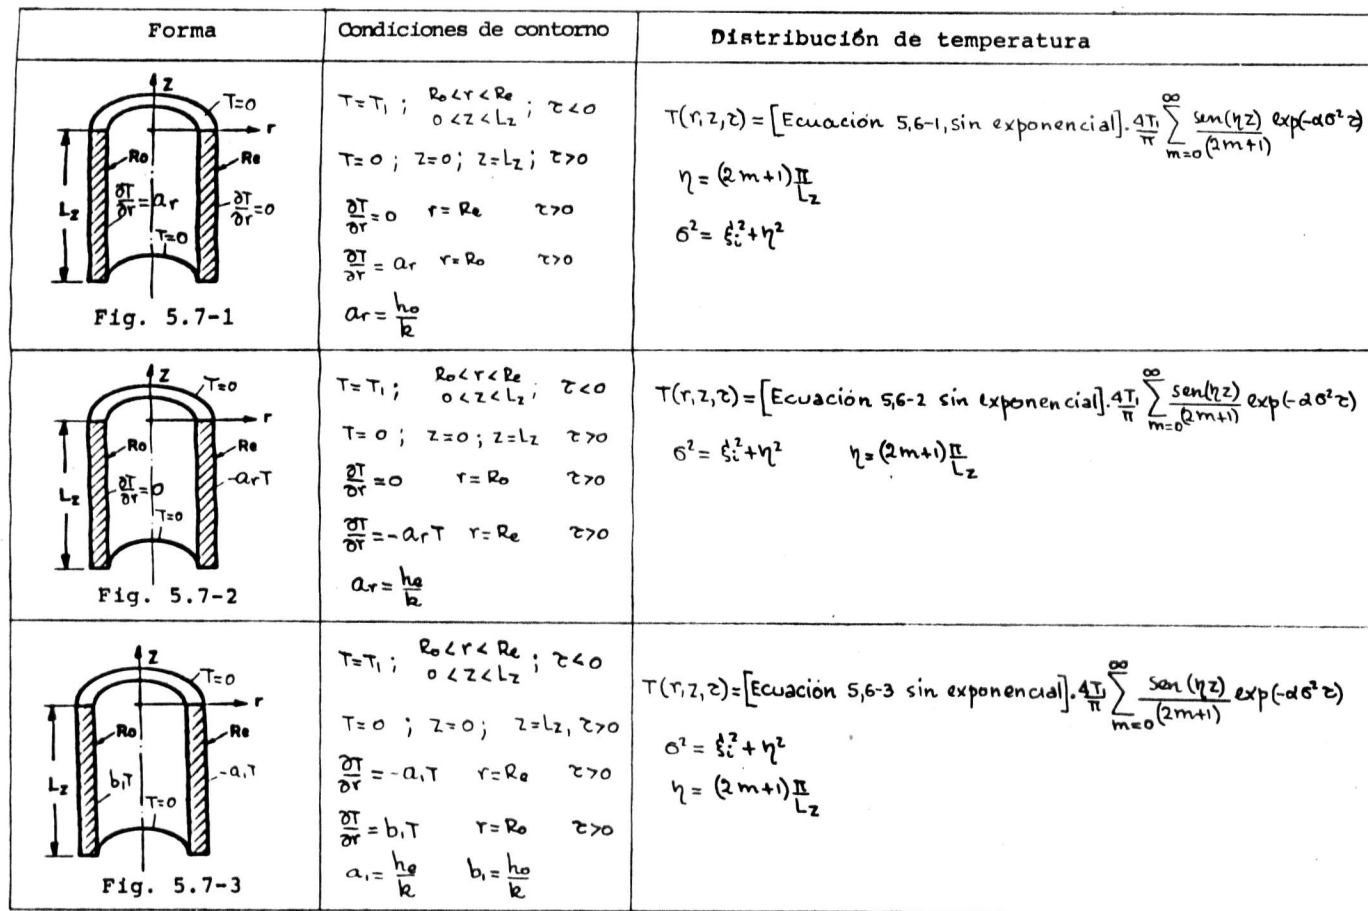 Forma
Condiciones de contorno
Distribución de temperatura
Z
T=0
r
Ro
Re
Lz
∂T/∂r = ar
∂T/∂r = 0
T=0
Fig. 5.7-1
T=T1 ; Ro<r<Re 0<z<Lz ; τ<0
T=0 ; z=0; z=Lz; τ>0
∂T/∂r = 0 r=Re τ>0
∂T/∂r = ar r=Ro τ>0
ar = ho/k
T(r,z,τ) = [Ecuación 5,6-1, sin exponencial]. 4T1/π ∑ m=0 ∞ sen(ηz)/(2m+1) exp(-ασ²τ)
η = (2m+1) π/Lz
σ² = ξi² + η²
Z
T=0
r
Ro
Re
Lz
∂T/∂r = 0
-arT
T=0
Fig. 5.7-2
T=T1 ; Ro<r<Re 0<z<Lz ; τ<0
T=0 ; z=0 ; z=Lz τ>0
∂T/∂r = 0 r=Ro τ>0
∂T/∂r = -arT r=Re τ>0
ar = he/k
T(r,z,τ) = [Ecuación 5,6-2 sin exponencial]. 4T1/π ∑ m=0 ∞ sen(ηz)/(2m+1) exp(-ασ²τ)
σ² = ξi² + η² η = (2m+1) π/Lz
Z
T=0
r
Ro
Re
Lz
b1T
-a1T
T=0
Fig. 5.7-3
T=T1 ; Ro<r<Re 0<z<Lz ; τ<0
T=0 ; z=0; z=Lz, τ>0
∂T/∂r = -a1T r=Re τ>0
∂T/∂r = b1T r=Ro τ>0
a1 = he/k b1 = ho/k
T(r,z,τ) = [Ecuación 5,6-3 sin exponencial]. 4T1/π ∑ m=0 ∞ sen(ηz)/(2m+1) exp(-ασ²τ)
σ² = ξi² + η²
η = (2m+1) π/Lz